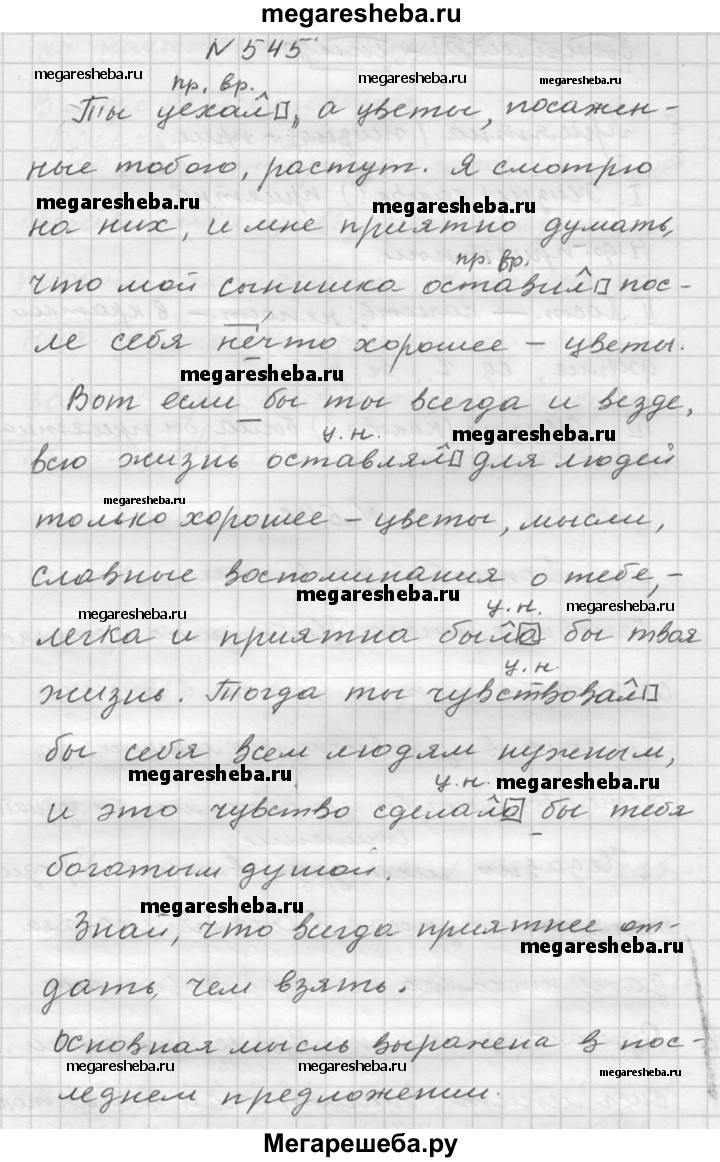 megaresheba.ru
N 545
megaresheba.ru megaresheba.ru megaresheba.ru
пр. вр.
Ты уехал, а цветы, посажен-
ные тобою, растут. Я смотрю
megaresheba.ru megaresheba.ru
на них, и мне приятно думать,
пр. вр.
что мой сынишка оставил пос-
ле себя нечто хорошее – цветы.
megaresheba.ru
Вот если бы ты всегда и везде,
у.н. megaresheba.ru
всю жизнь оставлял для людей
megaresheba.ru
только хорошее – цветы, мысли,
славные воспоминания о тебе, –
megaresheba.ru
megaresheba.ru у.н. megaresheba.ru
легка и приятна была бы твоя
у.н.
жизнь. Тогда ты чувствовал
бы себя всем людям нужным,
megaresheba.ru у.н. megaresheba.ru
и это чувство сделало бы тебя
богатым душой.
megaresheba.ru
Знай, что всегда приятнее от-
megaresheba.ru
дать, чем взять.
Основная мысль выражена в пос-
megaresheba.ru megaresheba.ru
леднем предложении.
Мегарешеба.ру